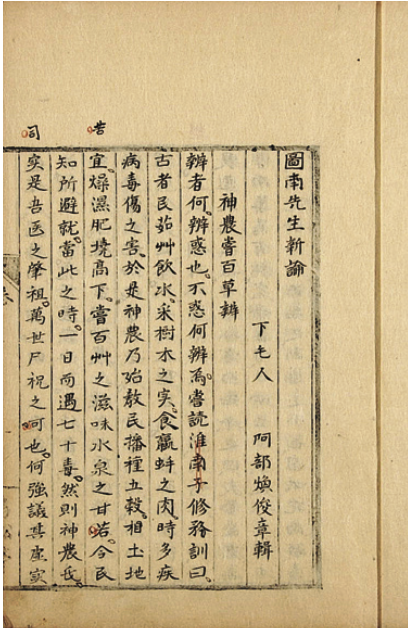 圖南先生新論
下毛人　阿部煥俊章輯
神農嘗百草辨
辨者何。辨惑也。不惑何辨焉。嘗読淮南子修務訓曰。
古者民茹艸飲水。采樹木之实。食蠃蚌之肉。時多疾
病毒傷之害。於是神農乃始教民播種五穀。相土地
宜。燥濕肥境高下。嘗百艸之滋味水泉之甘若。令民
知所避就。當此之時。一日而遇七十毒。然則神農氏
实是吾医之肇祖。萬世尸祝之可也。何強議其虚实
苦
司